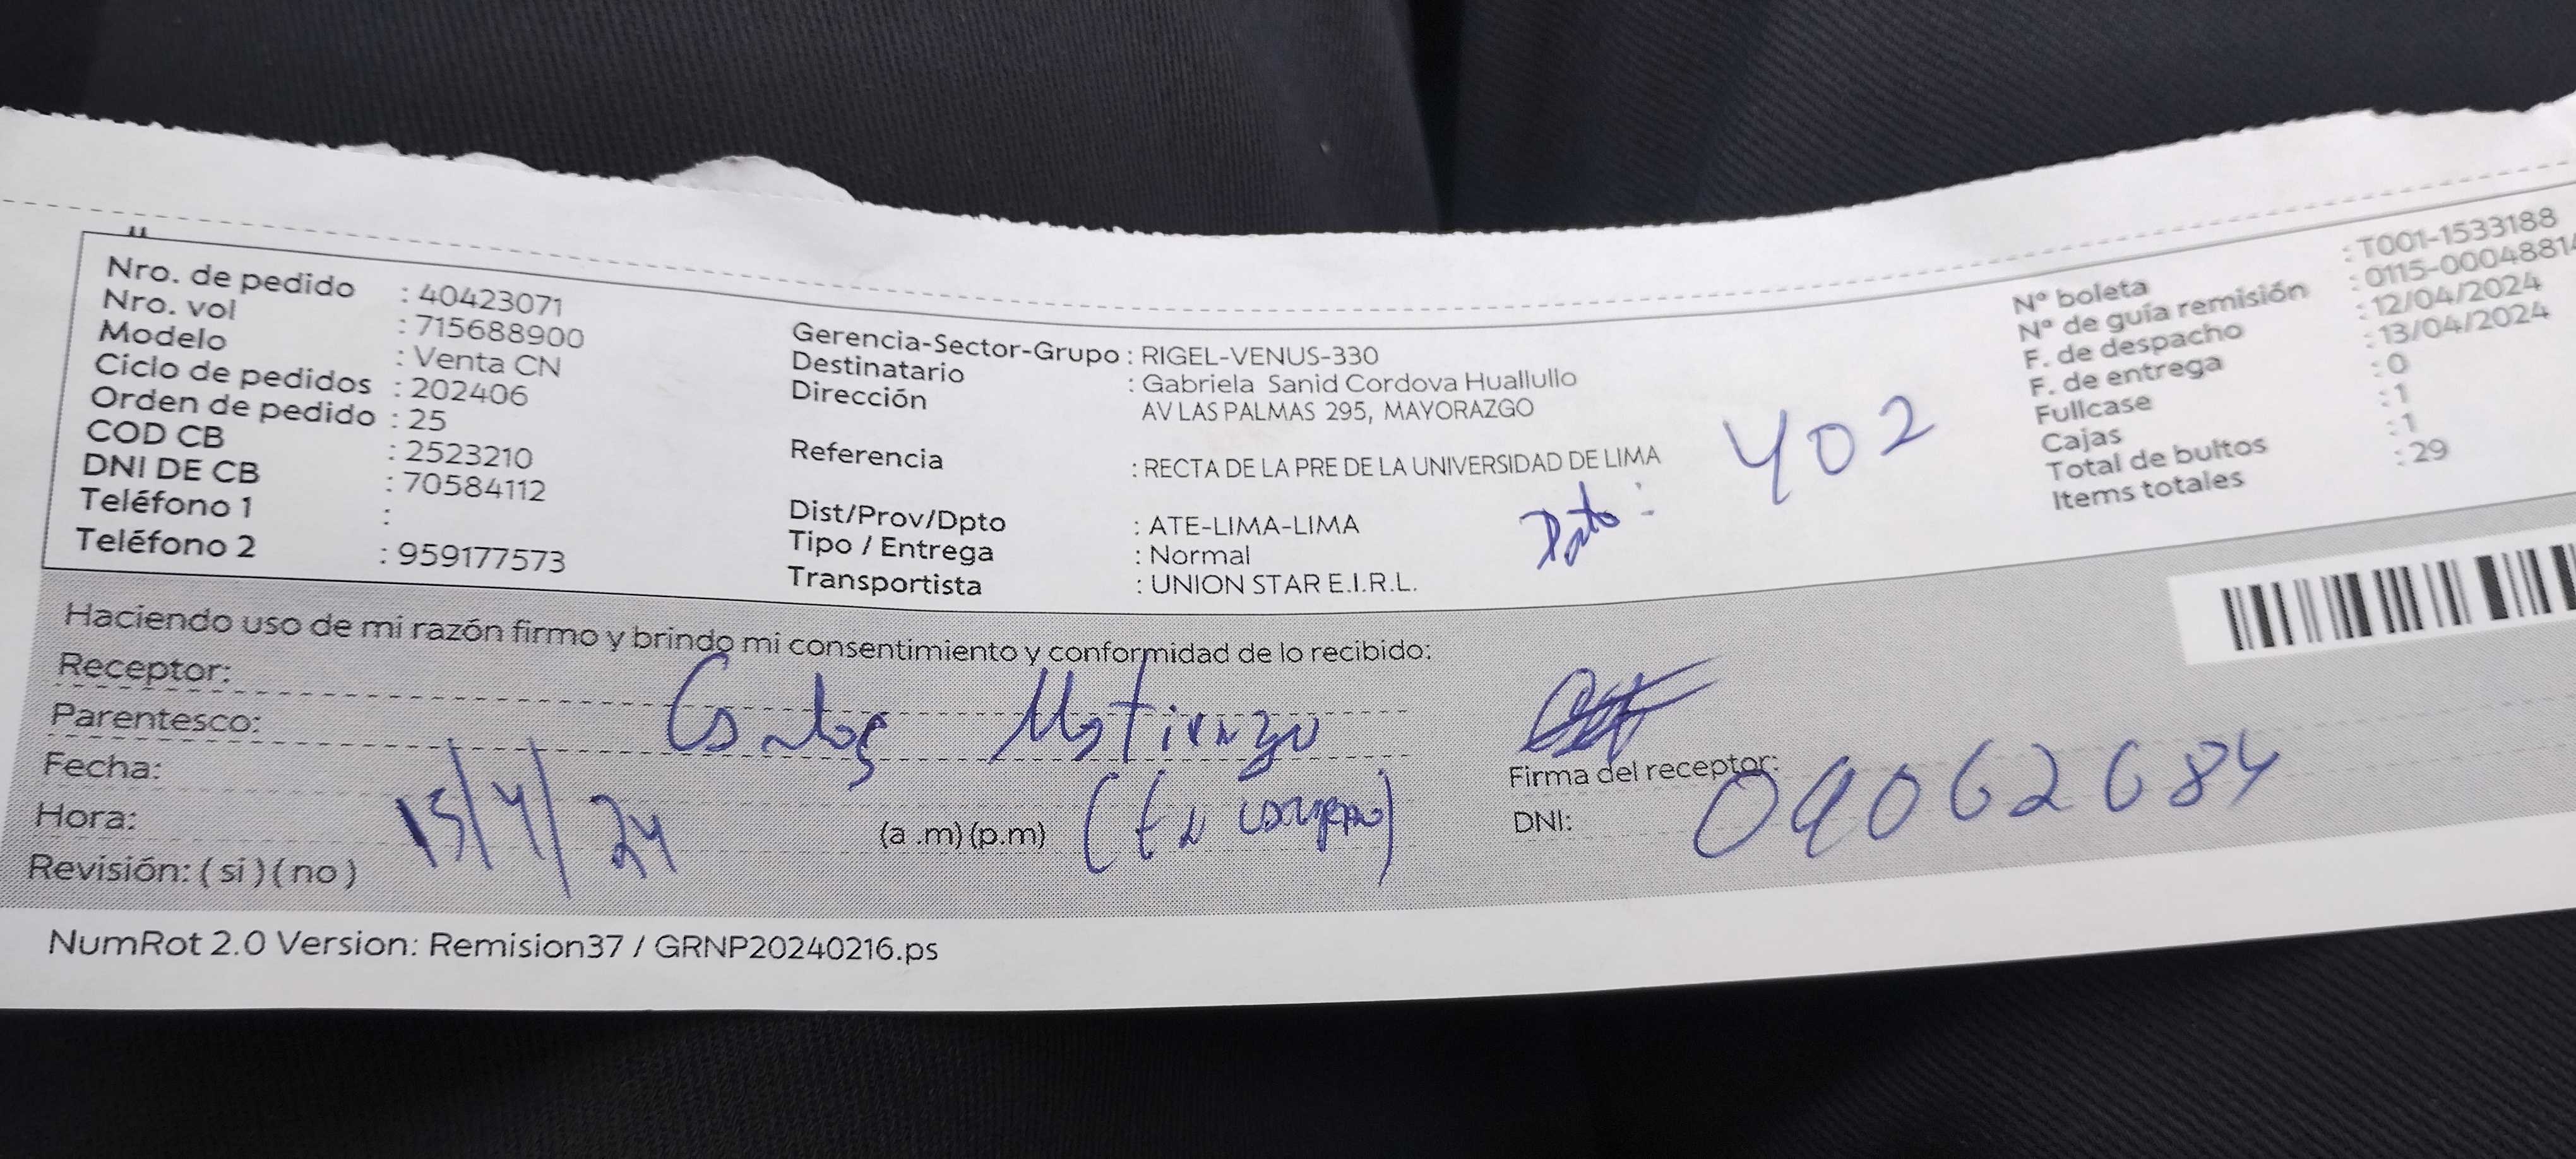 Nro. de pedido : 40423071
Nro. vol : 715688900
Modelo : Venta CN
Ciclo de pedidos : 202406
Orden de pedido : 25
COD CB : 2523210
DNI DE CB : 70584112
Teléfono 1 :
Teléfono 2 : 959177573
Gerencia-Sector-Grupo : RIGEL-VENUS-330
Destinatario : Gabriela Sanid Cordova Huallullo
Dirección AV LAS PALMAS 295, MAYORAZGO
Referencia : RECTA DE LA PRE DE LA UNIVERSIDAD DE LIMA
Dist/Prov/Dpto : ATE-LIMA-LIMA
Tipo / Entrega : Normal
Transportista : UNION STAR E.I.R.L.
Dpto: 402
N° boleta : T001-1533188
N° de guía remisión : 0115-00048814
F. de despacho : 12/04/2024
F. de entrega : 13/04/2024
Fullcase : 0
Cajas : 1
Total de bultos : 1
Items totales : 29
Haciendo uso de mi razón firmo y brindo mi consentimiento y conformidad de lo recibido:
Receptor: Carlos
Parentesco:
Fecha: 15/4/24
Hora: (a .m) (p.m)
Revisión: ( si ) ( no )
Firma del receptor:
DNI: 09062684
NumRot 2.0 Version: Remision37 / GRNP20240216.ps